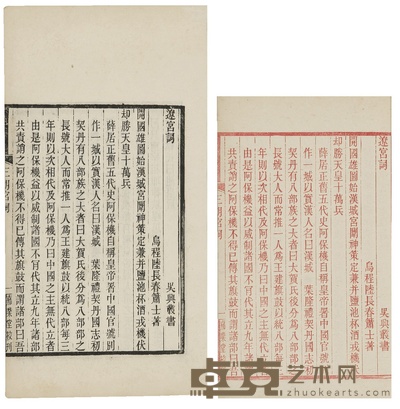 遼宮詞 吳興叢書
烏程陸長春簫士著
開國雄圖始漢城宮闈神策定兼并鹽池杯酒戎機伏
却勝天皇十萬兵
薛居正舊五代史阿保機自稱皇帝署中國官號則
作一城以實漢人名曰漢城 葉隆禮契丹國志初
契丹有八部族之大者曰大賀氏後分爲八部部之
長號大人而常推一人爲王建旗鼓以統八部每三
年則以次相代及阿保機乃曰中國之主無代立者
由是阿保機益以威制諸國不肯代其立九年諸部
共責誚之阿保機不得已傳其旗鼓而謂諸部曰吾
三朝宮詞 一
遼宮詞 吳興叢書
烏程陸長春簫士著
開國雄圖始漢城宮闈神策定兼并鹽池杯酒戎機伏
却勝天皇十萬兵
薛居正舊五代史阿保機自稱皇帝署中國官號則
作一城以實漢人名曰漢城 葉隆禮契丹國志初
契丹有八部族之大者曰大賀氏後分爲八部部之
長號大人而常推一人爲王建旗鼓以統八部每三
年則以次相代及阿保機乃曰中國之主無代立者
由是阿保機益以威制諸國不肯代其立九年諸部
共責誚之阿保機不得已傳其旗鼓而謂諸部曰吾
三朝宮詞 一
卓克艺术网
www.zhuokearts.com